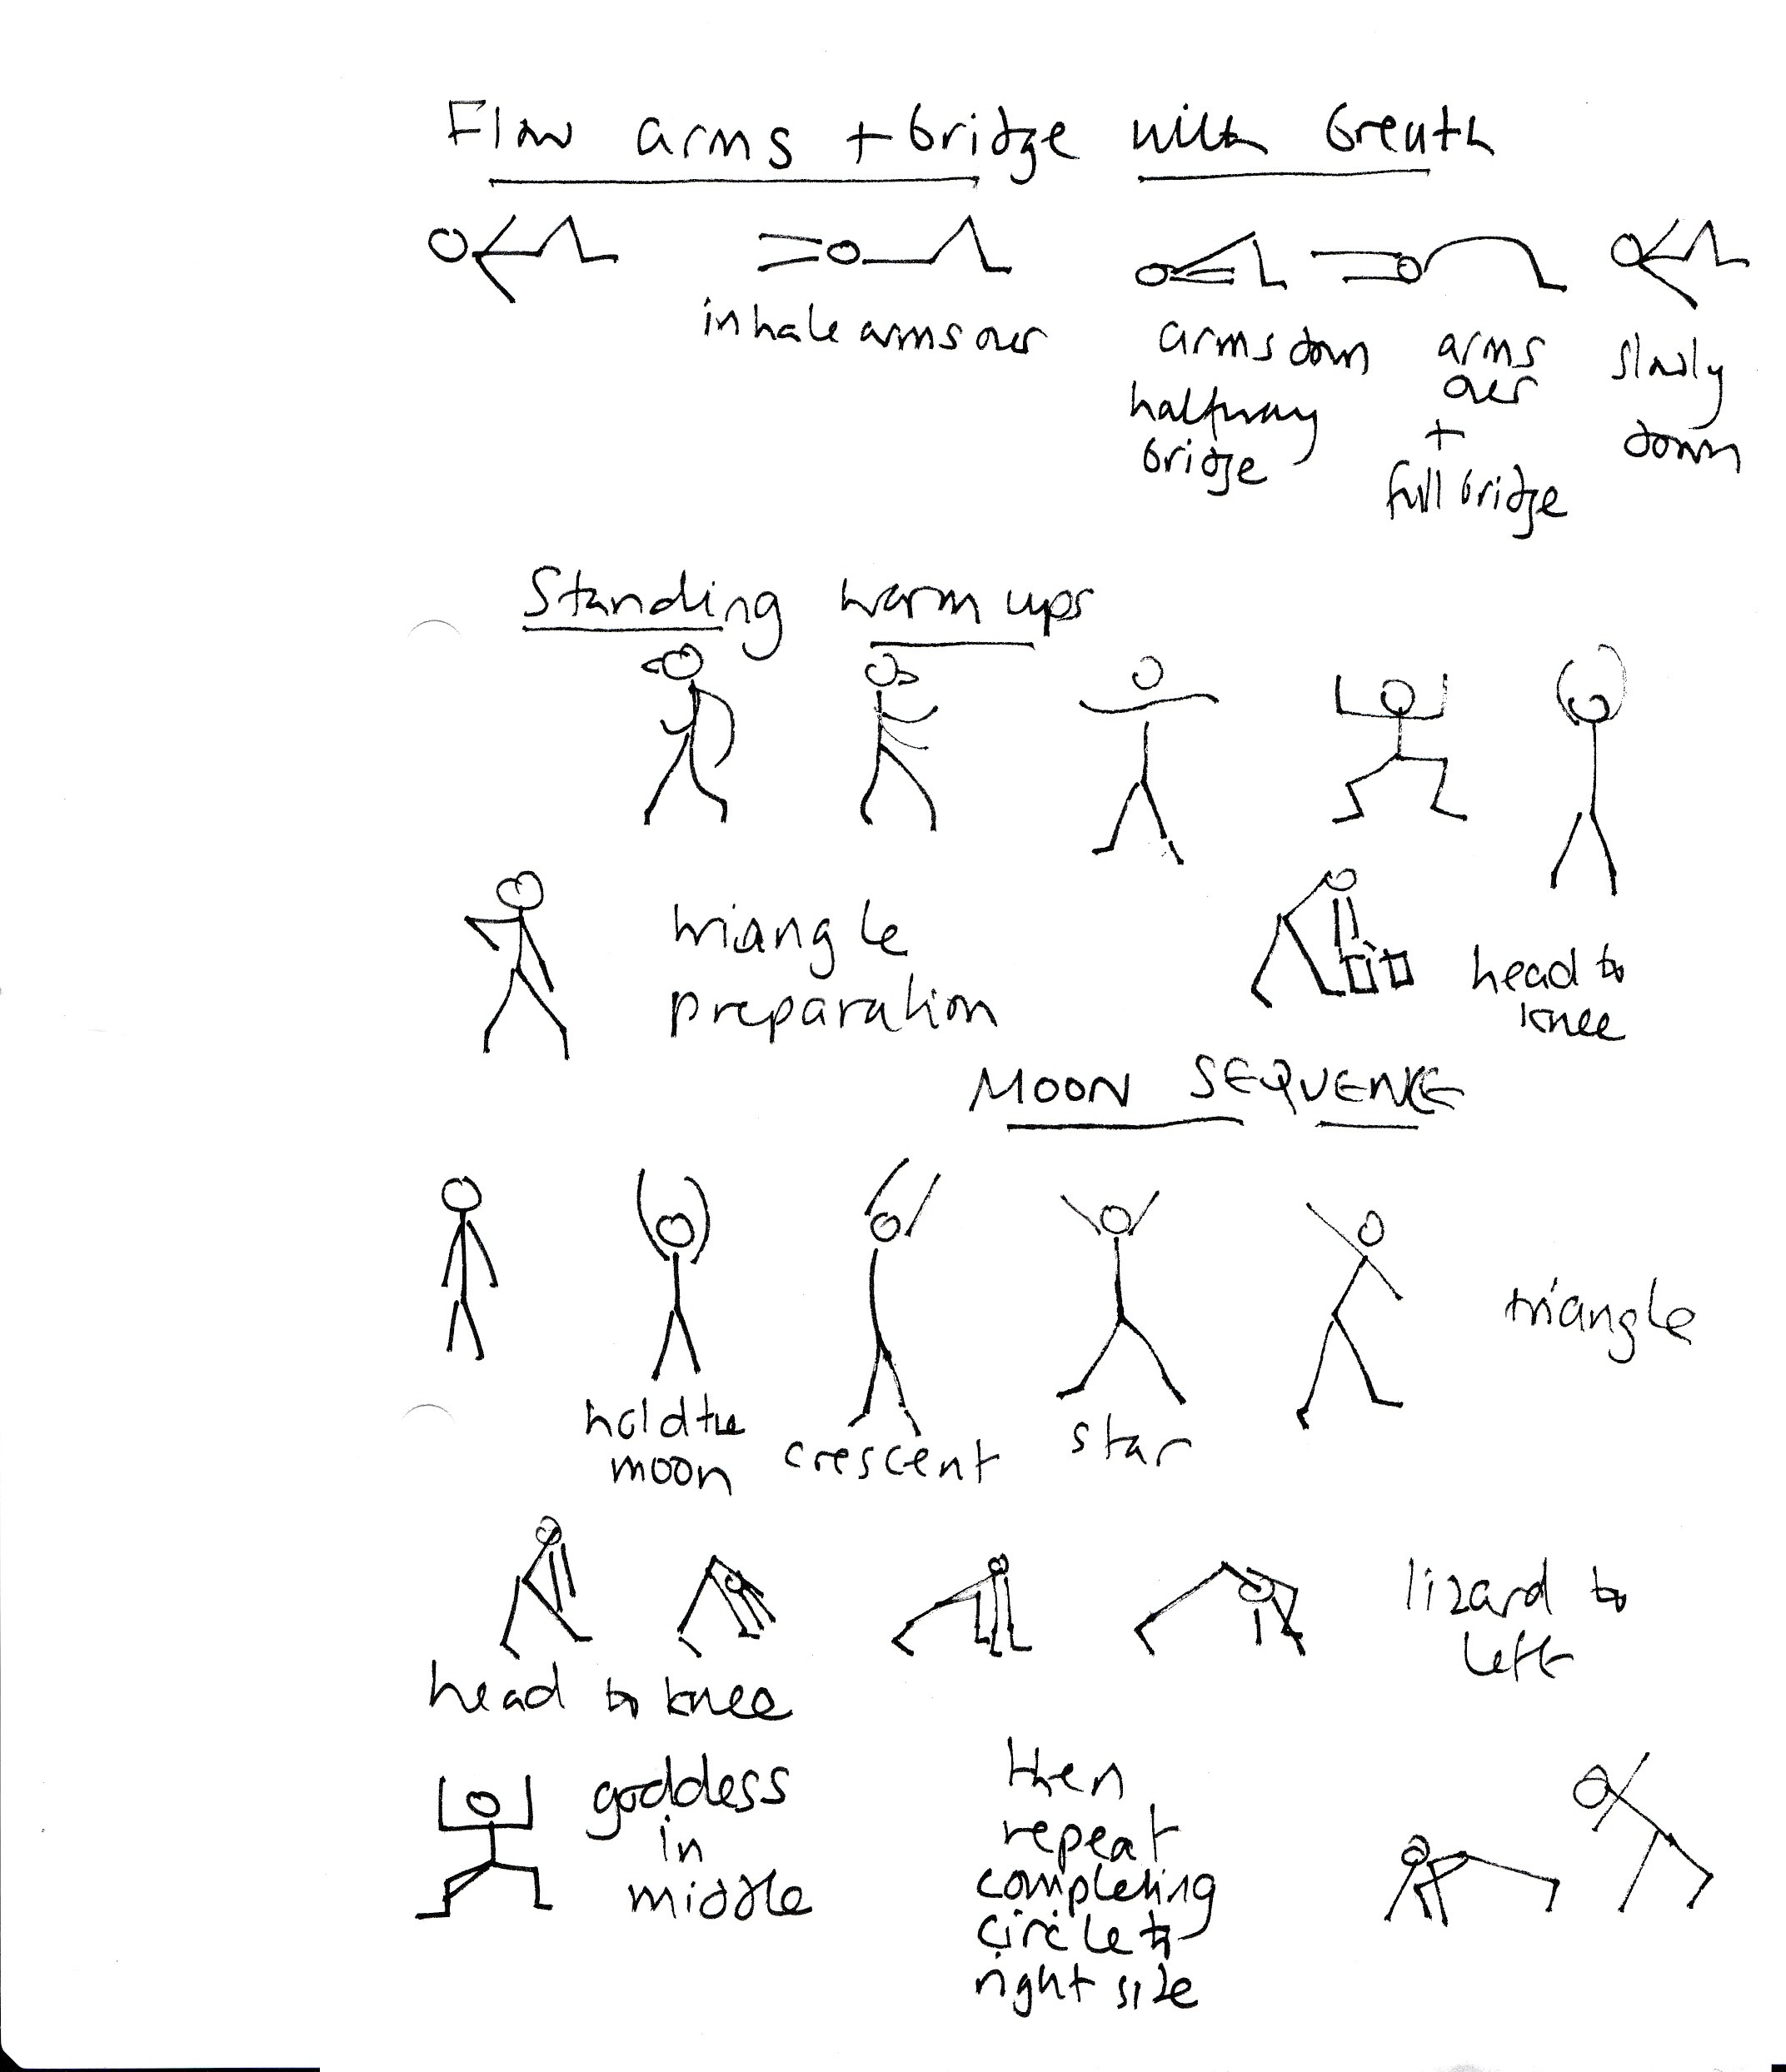 Flow arms + bridge with breath
inhale arms over
arms down
halfway
bridge
arms
over
+
full bridge
slowly
down
Standing warm ups
triangle
preparation
head to
knee
MOON SEQUENCE
hold the
moon
crescent
star
triangle
head to knee
lizard to
left
goddess
in
middle
then
repeat
completing
circle to
right side